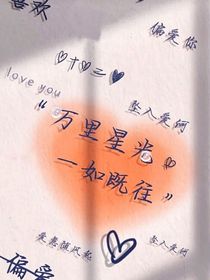 偏爱你
十三
love you
坠入爱河
“万里星光
一如既往”
爱意随风起
坠入爱河
偏爱